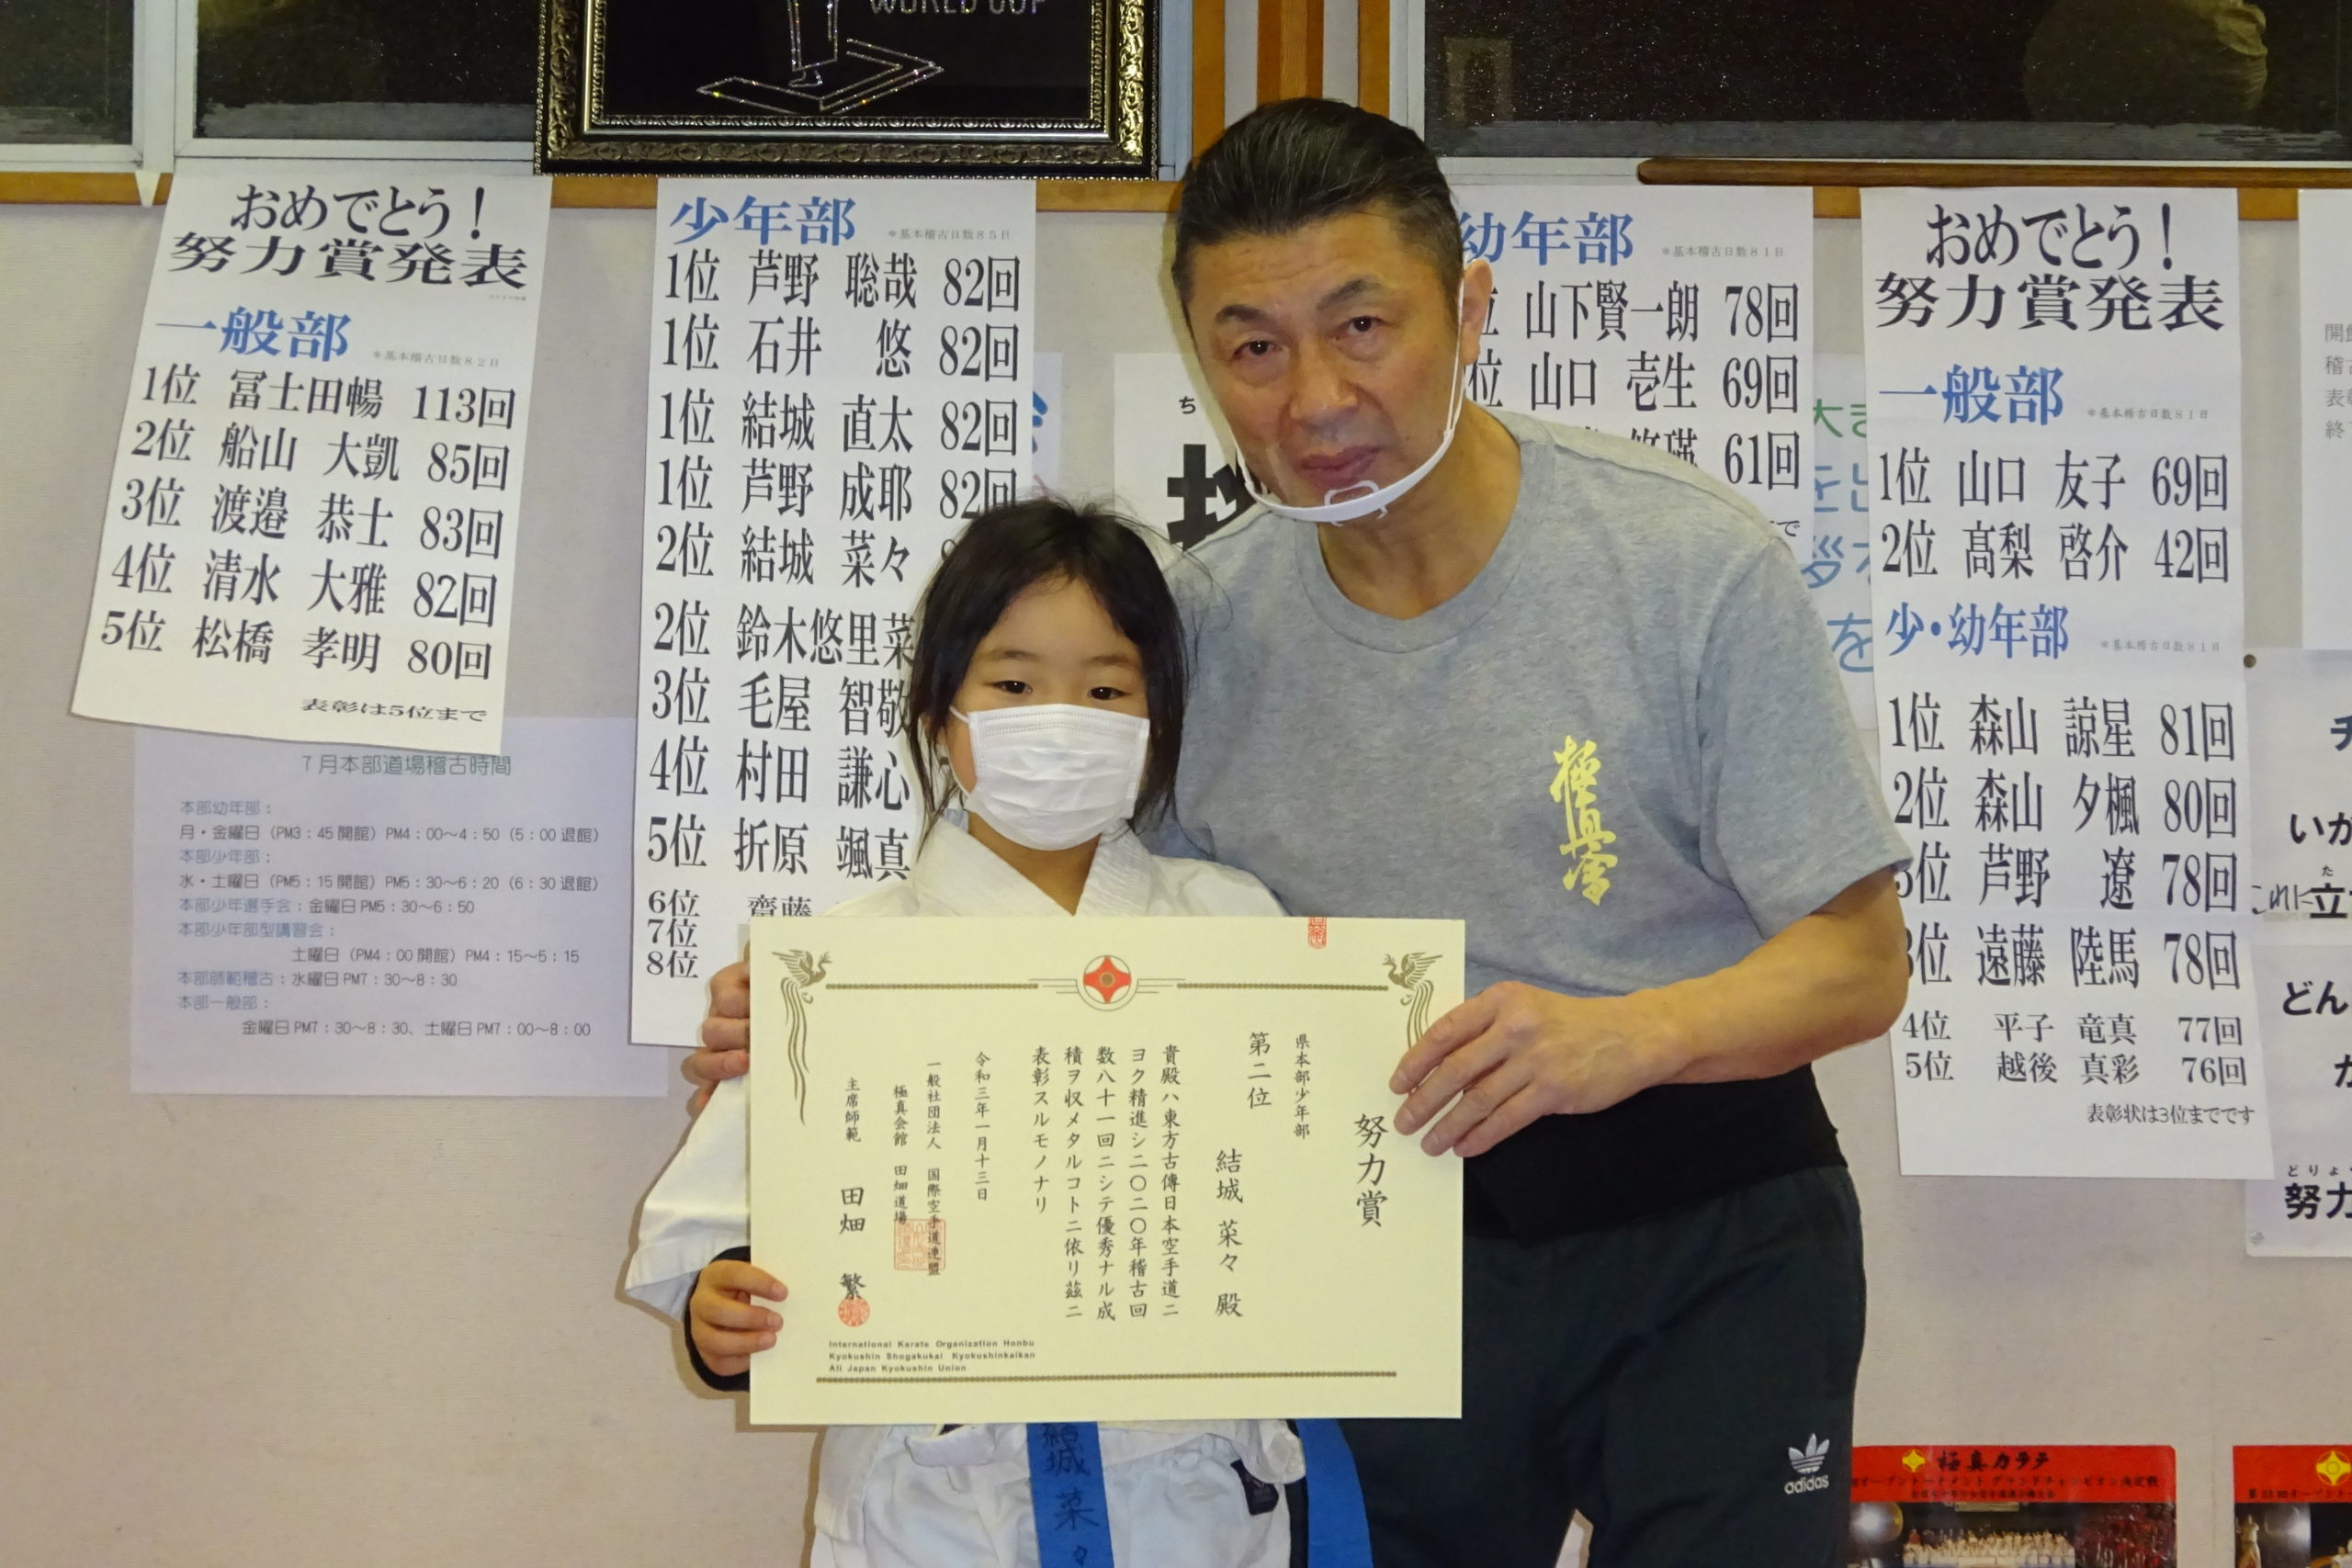 WORLD CUP
おめでとう!
努力賞発表
一般部 *基本稽古日数82日
1位 冨士田暢 113回
2位 船山 大凱 85回
3位 渡邉 恭士 83回
4位 清水 大雅 82回
5位 松橋 孝明 80回
表彰は5位まで
7月本部道場稽古時間
本部幼年部:
月・金曜日(PM3:45開館)PM4:00~4:50(5:00退館)
本部少年部:
水・土曜日(PM5:15開館)PM5:30~6:20(6:30退館)
本部少年選手会:金曜日PM5:30~6:50
本部少年部型講習会:
土曜日(PM4:00開館)PM4:15~5:15
本部師範稽古:水曜日PM7:30~8:30
本部一般部:
金曜日PM7:30~8:30、土曜日PM7:00~8:00
少年部 *基本稽古日数85日
1位 芦野 聡哉 82回
1位 石井 悠 82回
1位 結城 直太 82回
1位 芦野 成耶 82回
2位 結城 菜々
2位 鈴木悠里菜
3位 毛屋 智敬
4位 村田 謙心
5位 折原 颯真
6位 齋藤
7位
8位
幼年部 *基本稽古日数81日
位 山下賢一朗 78回
位 山口 壱生 69回
61回
おめでとう!
努力賞発表
一般部 *基本稽古日数81日
1位 山口 友子 69回
2位 髙梨 啓介 42回
少・幼年部 *基本稽古日数81日
1位 森山 諒星 81回
2位 森山 夕楓 80回
3位 芦野 遼 78回
3位 遠藤 陸馬 78回
4位 平子 竜真 77回
5位 越後 真彩 76回
表彰状は3位までです
極真会
努力賞
県本部少年部
第二位
結城 菜々 殿
貴殿ハ東方古傳日本空手道ニ
ヨク精進シ二〇二〇年稽古回
数八十一回ニシテ優秀ナル成
積ヲ収メタルコトニ依リ茲ニ
表彰スルモノナリ
令和三年一月十三日
一般社団法人 国際空手道連盟
極真会館 田畑道場
主席師範 田畑 繁
International Karate Organization Honbu
Kyokushin Shogakukai Kyokushinkaikan
All Japan Kyokushin Union
結城菜々
adidas
極真カラテ
いが
立
どん
どりょ
努力